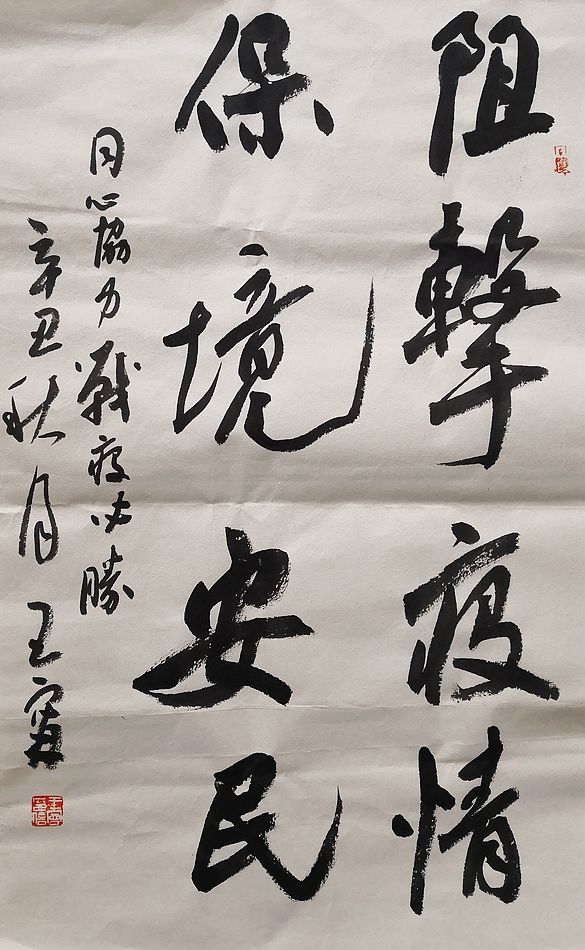 阻擊疫情
保境安民
同心協力戰疫必勝
辛丑秋月王寅